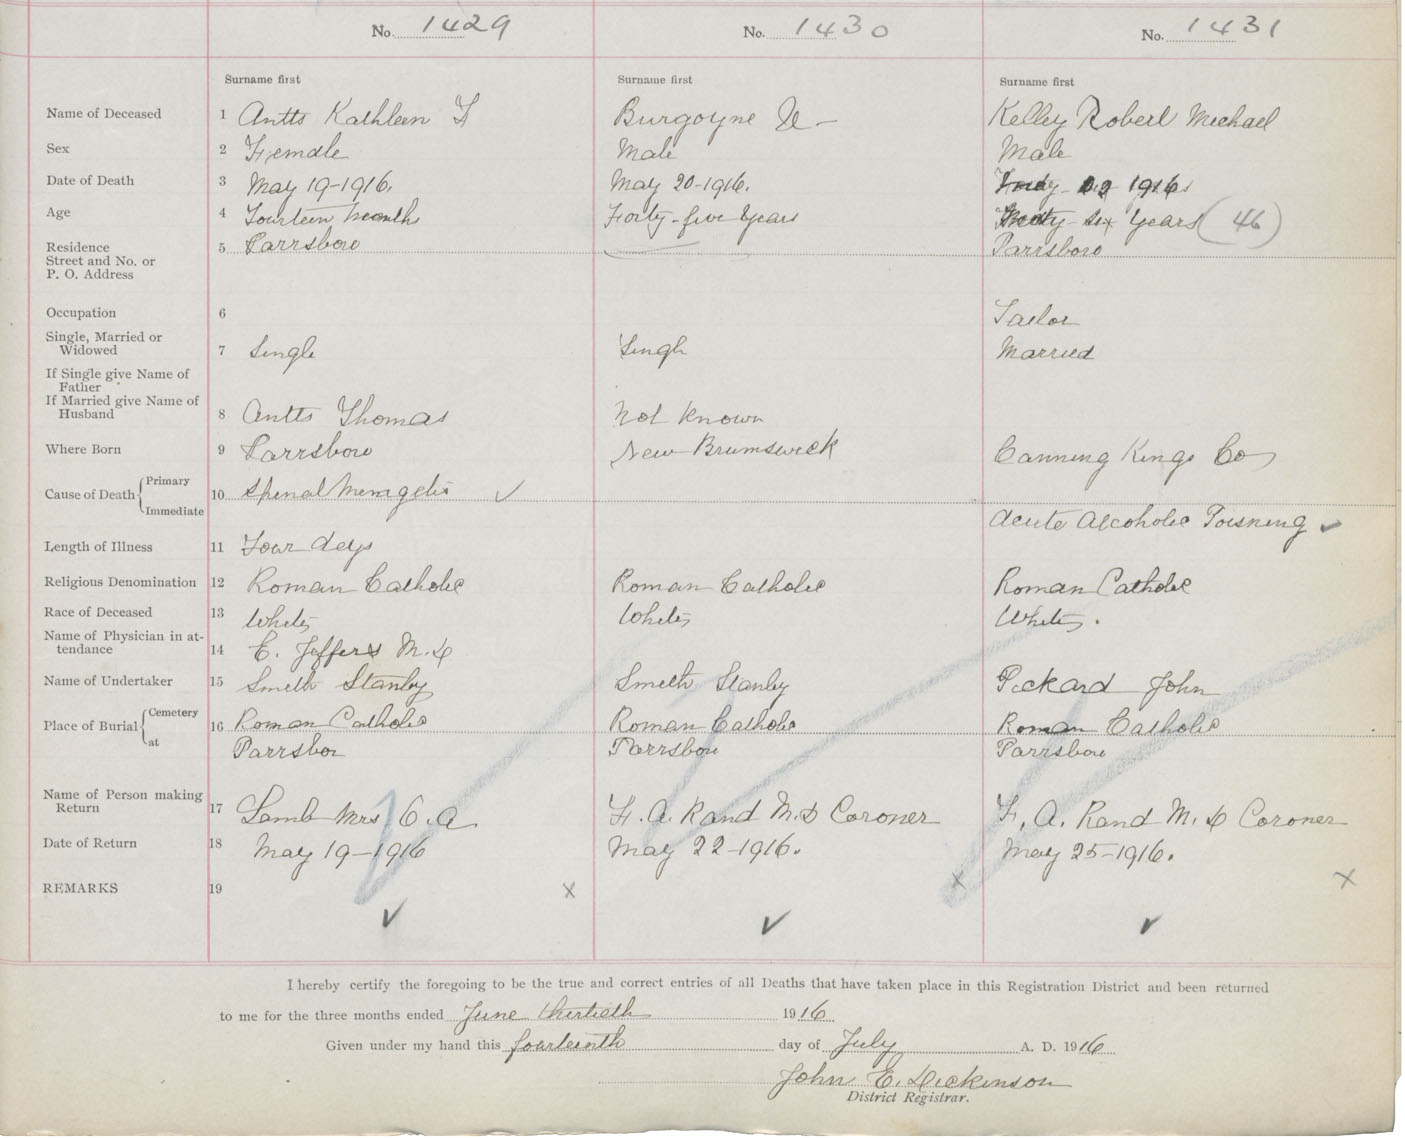 No. 1429 No. 1430 No. 1431
Surname first Surname first Surname first
Name of Deceased 1 Antts Kathleen F Burgoyne Kelley Robert Michael
Sex 2 Female Male Male
Date of Death 3 May 19-1916. May 20-1916. 22 1916
Age 4 Fourteen months Forty-five Years six Years (46)
Residence 5 Parrsboro Parrsboro
Street and No. or
P. O. Address
Occupation 6 Tailor
Single, Married or
Widowed 7 Single Singl Married
If Single give Name of
Father
If Married give Name of
Husband 8 Antts Thomas Not Known
Where Born 9 Parrsboro New Brumswick Canning Kings Co
Cause of Death Primary 10 Spinal Meningetis ✓
Immediate Acute Alcoholic Poisning ✓
Length of Illness 11 Four days
Religious Denomination 12 Roman Catholic Roman Catholic Roman Catholic
Race of Deceased 13 White White White.
Name of Physician in at-
tendance 14 E. Jeffers M.D
Name of Undertaker 15 Smith Stanley Smith Stanley Pickard John
Place of Burial Cemetery 16 Roman Catholic Roman Catholic Roman Catholic
at Parrsboro Parrsboro Parrsboro
Name of Person making
Return 17 Lamb Mrs C. A F. A. Rand M.D Coroner F. A. Rand M.D Coroner
Date of Return 18 May 19-1916 May 22-1916. May 25-1916.
REMARKS 19 x x x
✓ ✓ ✓
I hereby certify the foregoing to be the true and correct entries of all Deaths that have taken place in this Registration District and been returned
to me for the three months ended June thirtieth 1916
Given under my hand this fourteenth day of July A. D. 1916
John E. Dickinson
District Registrar.